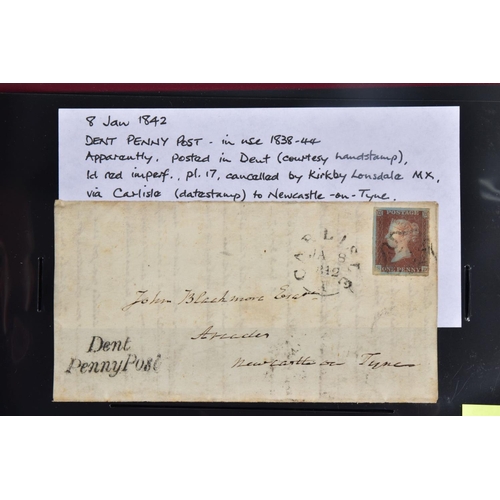 8 Jan 1842
DENT PENNY POST - in use 1838-44
Apparently, posted in Dent (courtesy handstamp),
1d red imperf., pl. 17, cancelled by Kirkby Lonsdale MX,
via Carlisle (datestamp) to Newcastle-on-Tyne.
POSTAGE
ONE PENNY
CARLISLE
JA 8
John Blackmore Esqr
Arcade
Newcastle on Tyne
Dent
Penny Post